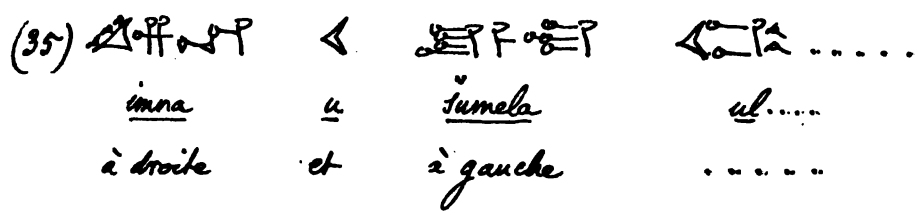 (35) 𒌋 .....
imna u šumela ul....
à droite et à gauche .....